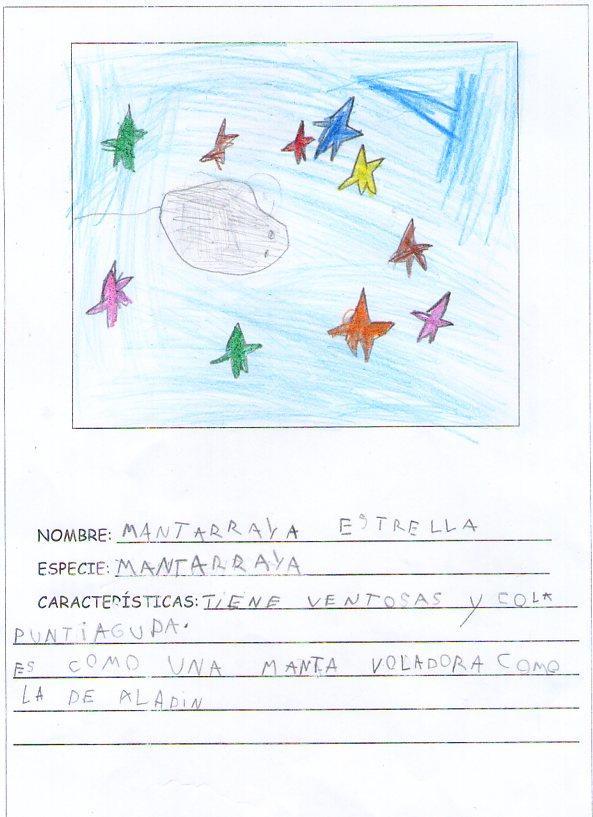 NOMBRE: MANTARRAYA ESTRELLA
ESPECIE: MANTARRAYA
CARACTERÍSTICAS: TIENE VENTOSAS Y COLA
PUNTIAGUDA.
ES COMO UNA MANTA VOLADORA COMO
LA DE ALADIN